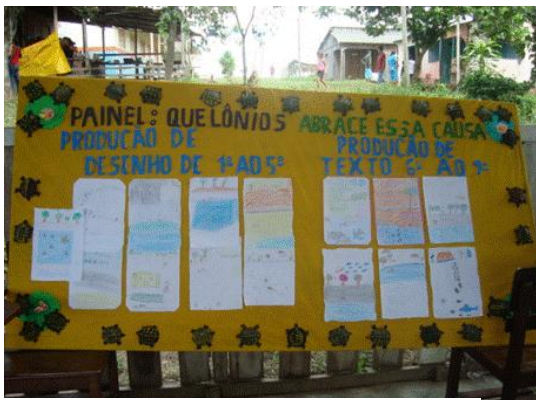 PAINEL: QUELÔNIOS ABRACE ESSA CAUSA
PRODUCÃO DE
DESENHO DE 1º AO 5º
PRODUCÃO DE
TEXTO 6º AO 9º